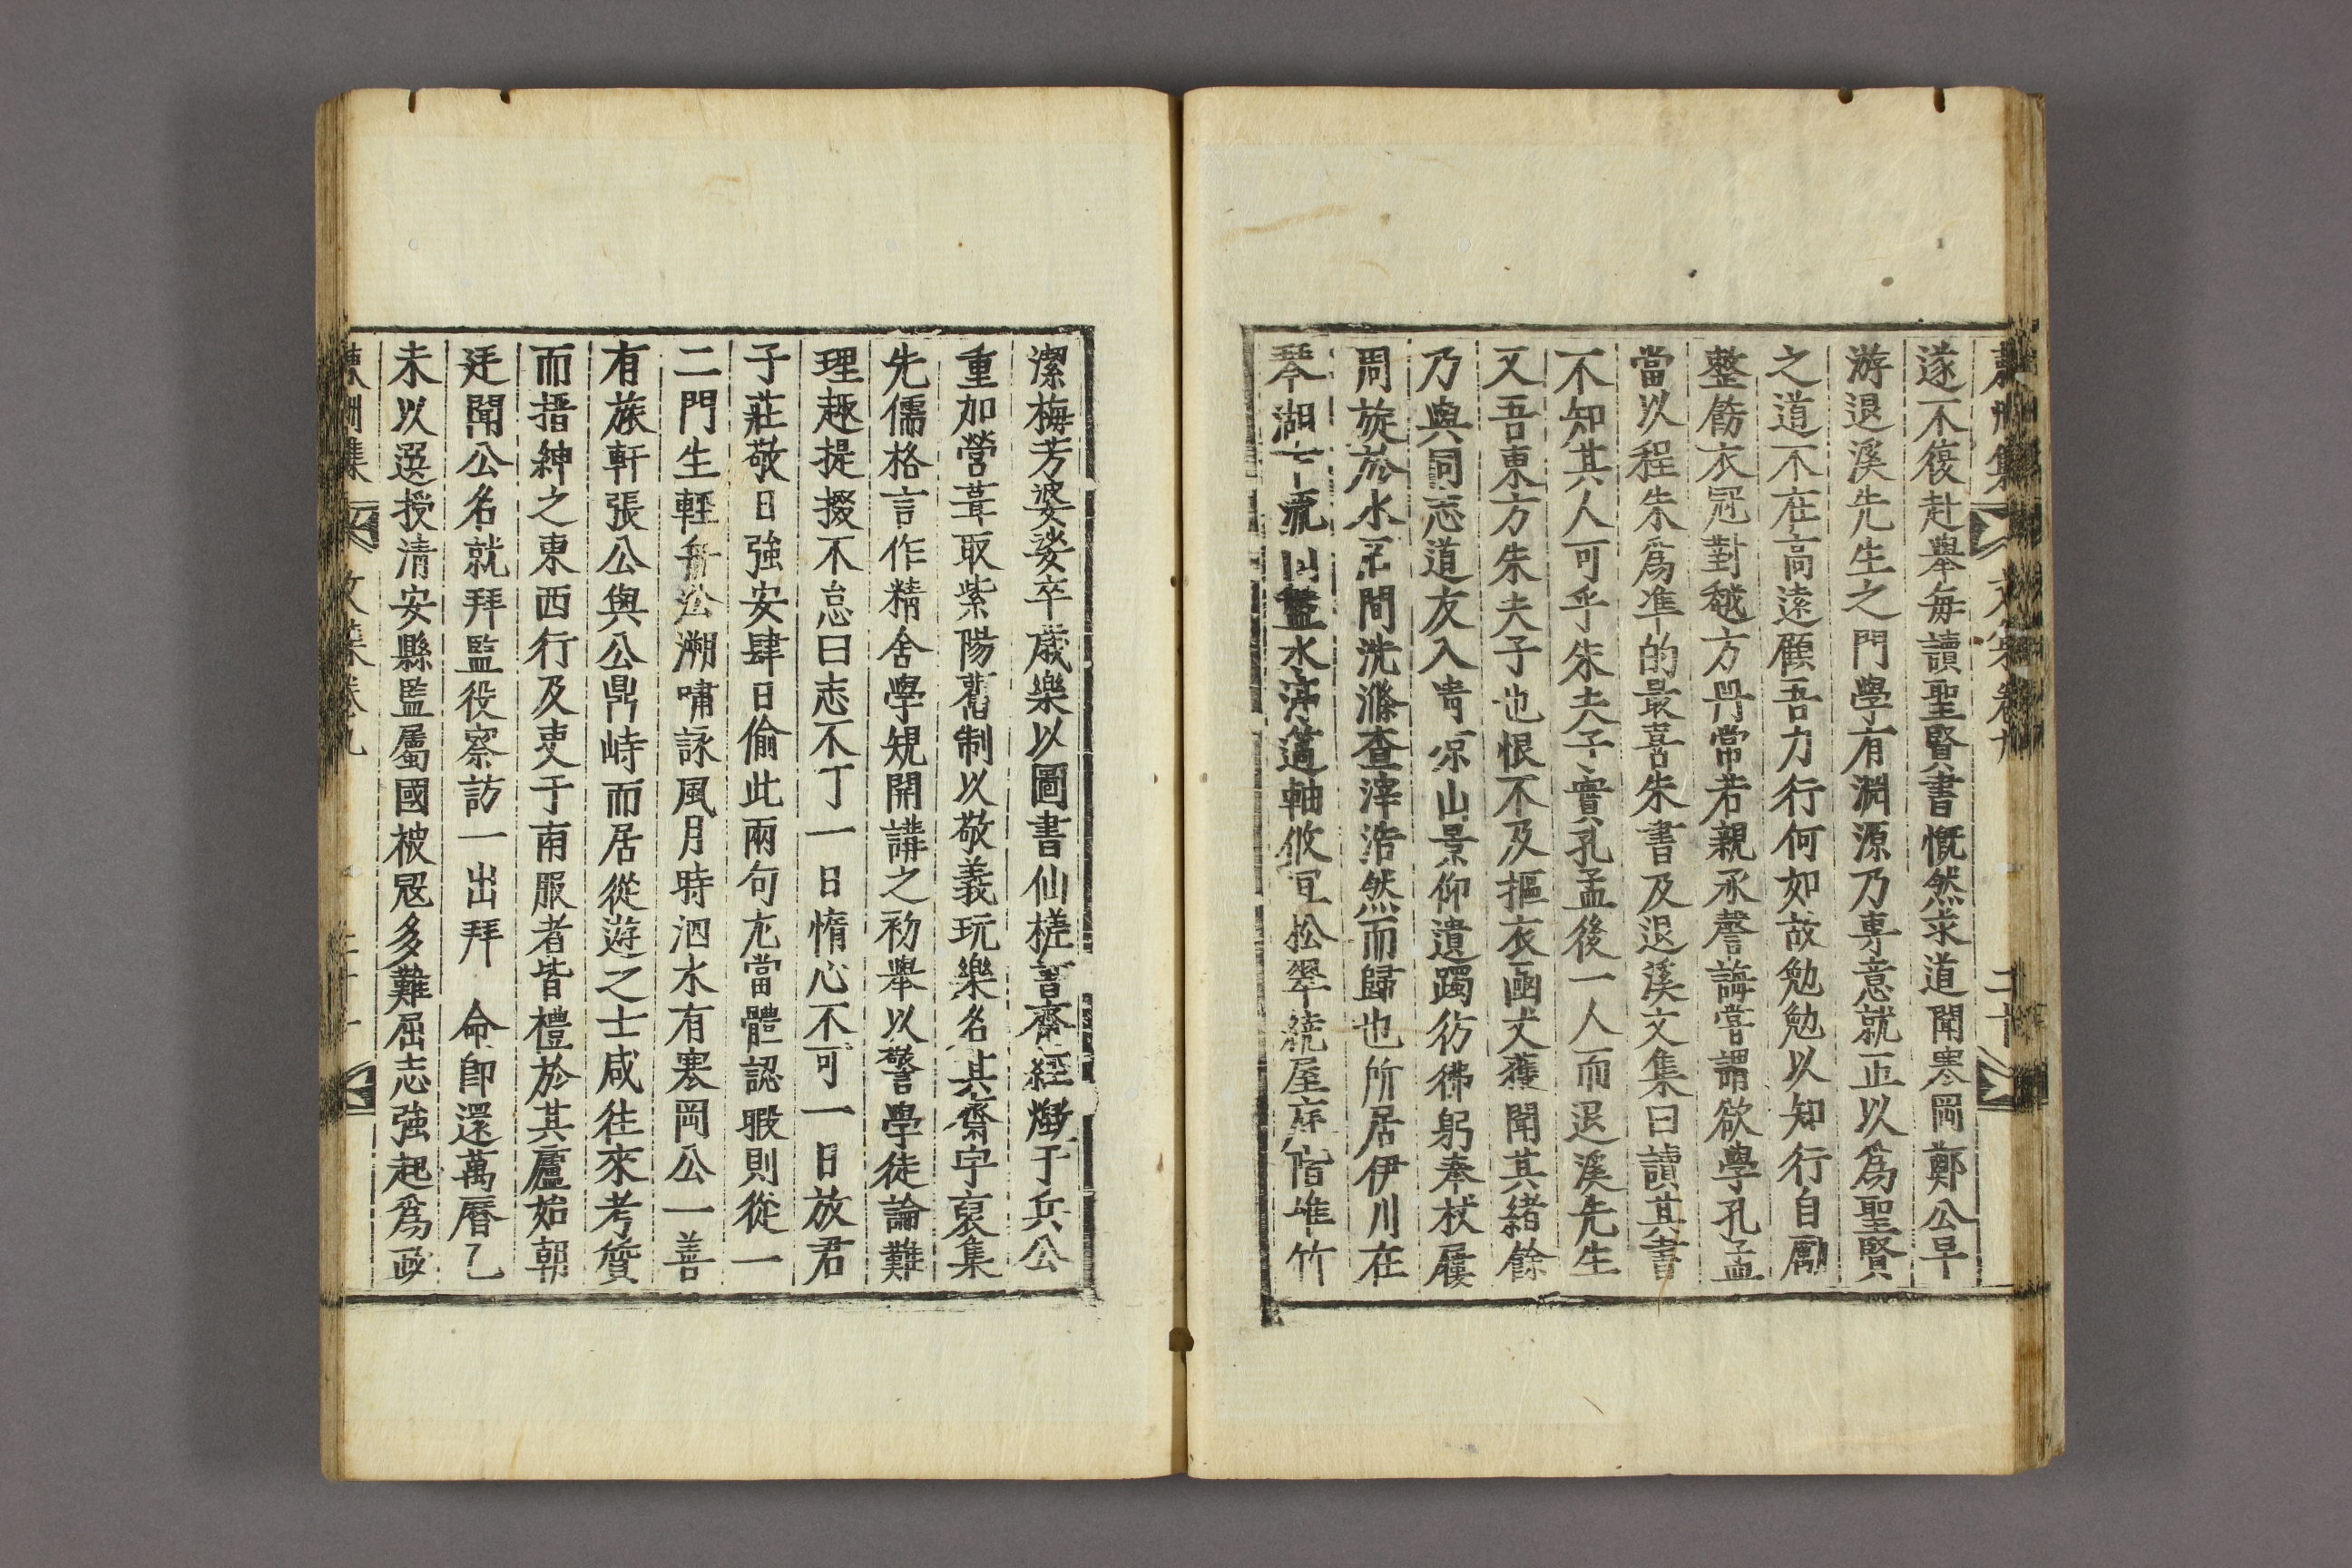 遂不復赴擧每讀聖賢書慨然求道聞寒岡鄭公早
游退溪先生之門學有淵源乃專意就正以爲聖賢
之道不在高遠顧吾力行何如故勉勉以知行自勵
整飭衣冠對越方冊常若親承謦誨嘗謂欲學孔孟
當以程朱爲準的最喜朱書及退溪文集曰讀其書
不知其人可乎朱夫子實孔孟後一人而退溪先生
又吾東方朱夫子也恨不及摳衣函丈獲聞其緖餘
乃與同志道友入淸凉山景仰遺躅彷彿躬奉杖屨
周旋於水石間洗滌査滓浩然而歸也所居伊川在
琴湖下流山盤水渟薖軸攸宜松翠繞屋庭階堆竹
潔梅芳婆娑卒歲樂以圖書仙槎齋經燬于兵公
重加營葺取紫陽舊制以敬義玩樂名其齋宇裒集
先儒格言作精舍學規開講之初擧以警學徒論難
理趣提掇不怠曰志不丁一日惰心不可一日放君
子莊敬日強安肆日偸此兩句尤當體認暇則從一
二門生輕舟沿溯嘯詠風月時泗水有寒岡公一善
有旅軒張公與公鼎峙而居從遊之士咸往來考質
而搢紳之東西行及吏于南服者皆禮於其廬始朝
廷聞公名就拜監役察訪一出拜 命卽還萬曆乙
未以選授淸安縣監屬國被冦多難屈志強起爲政